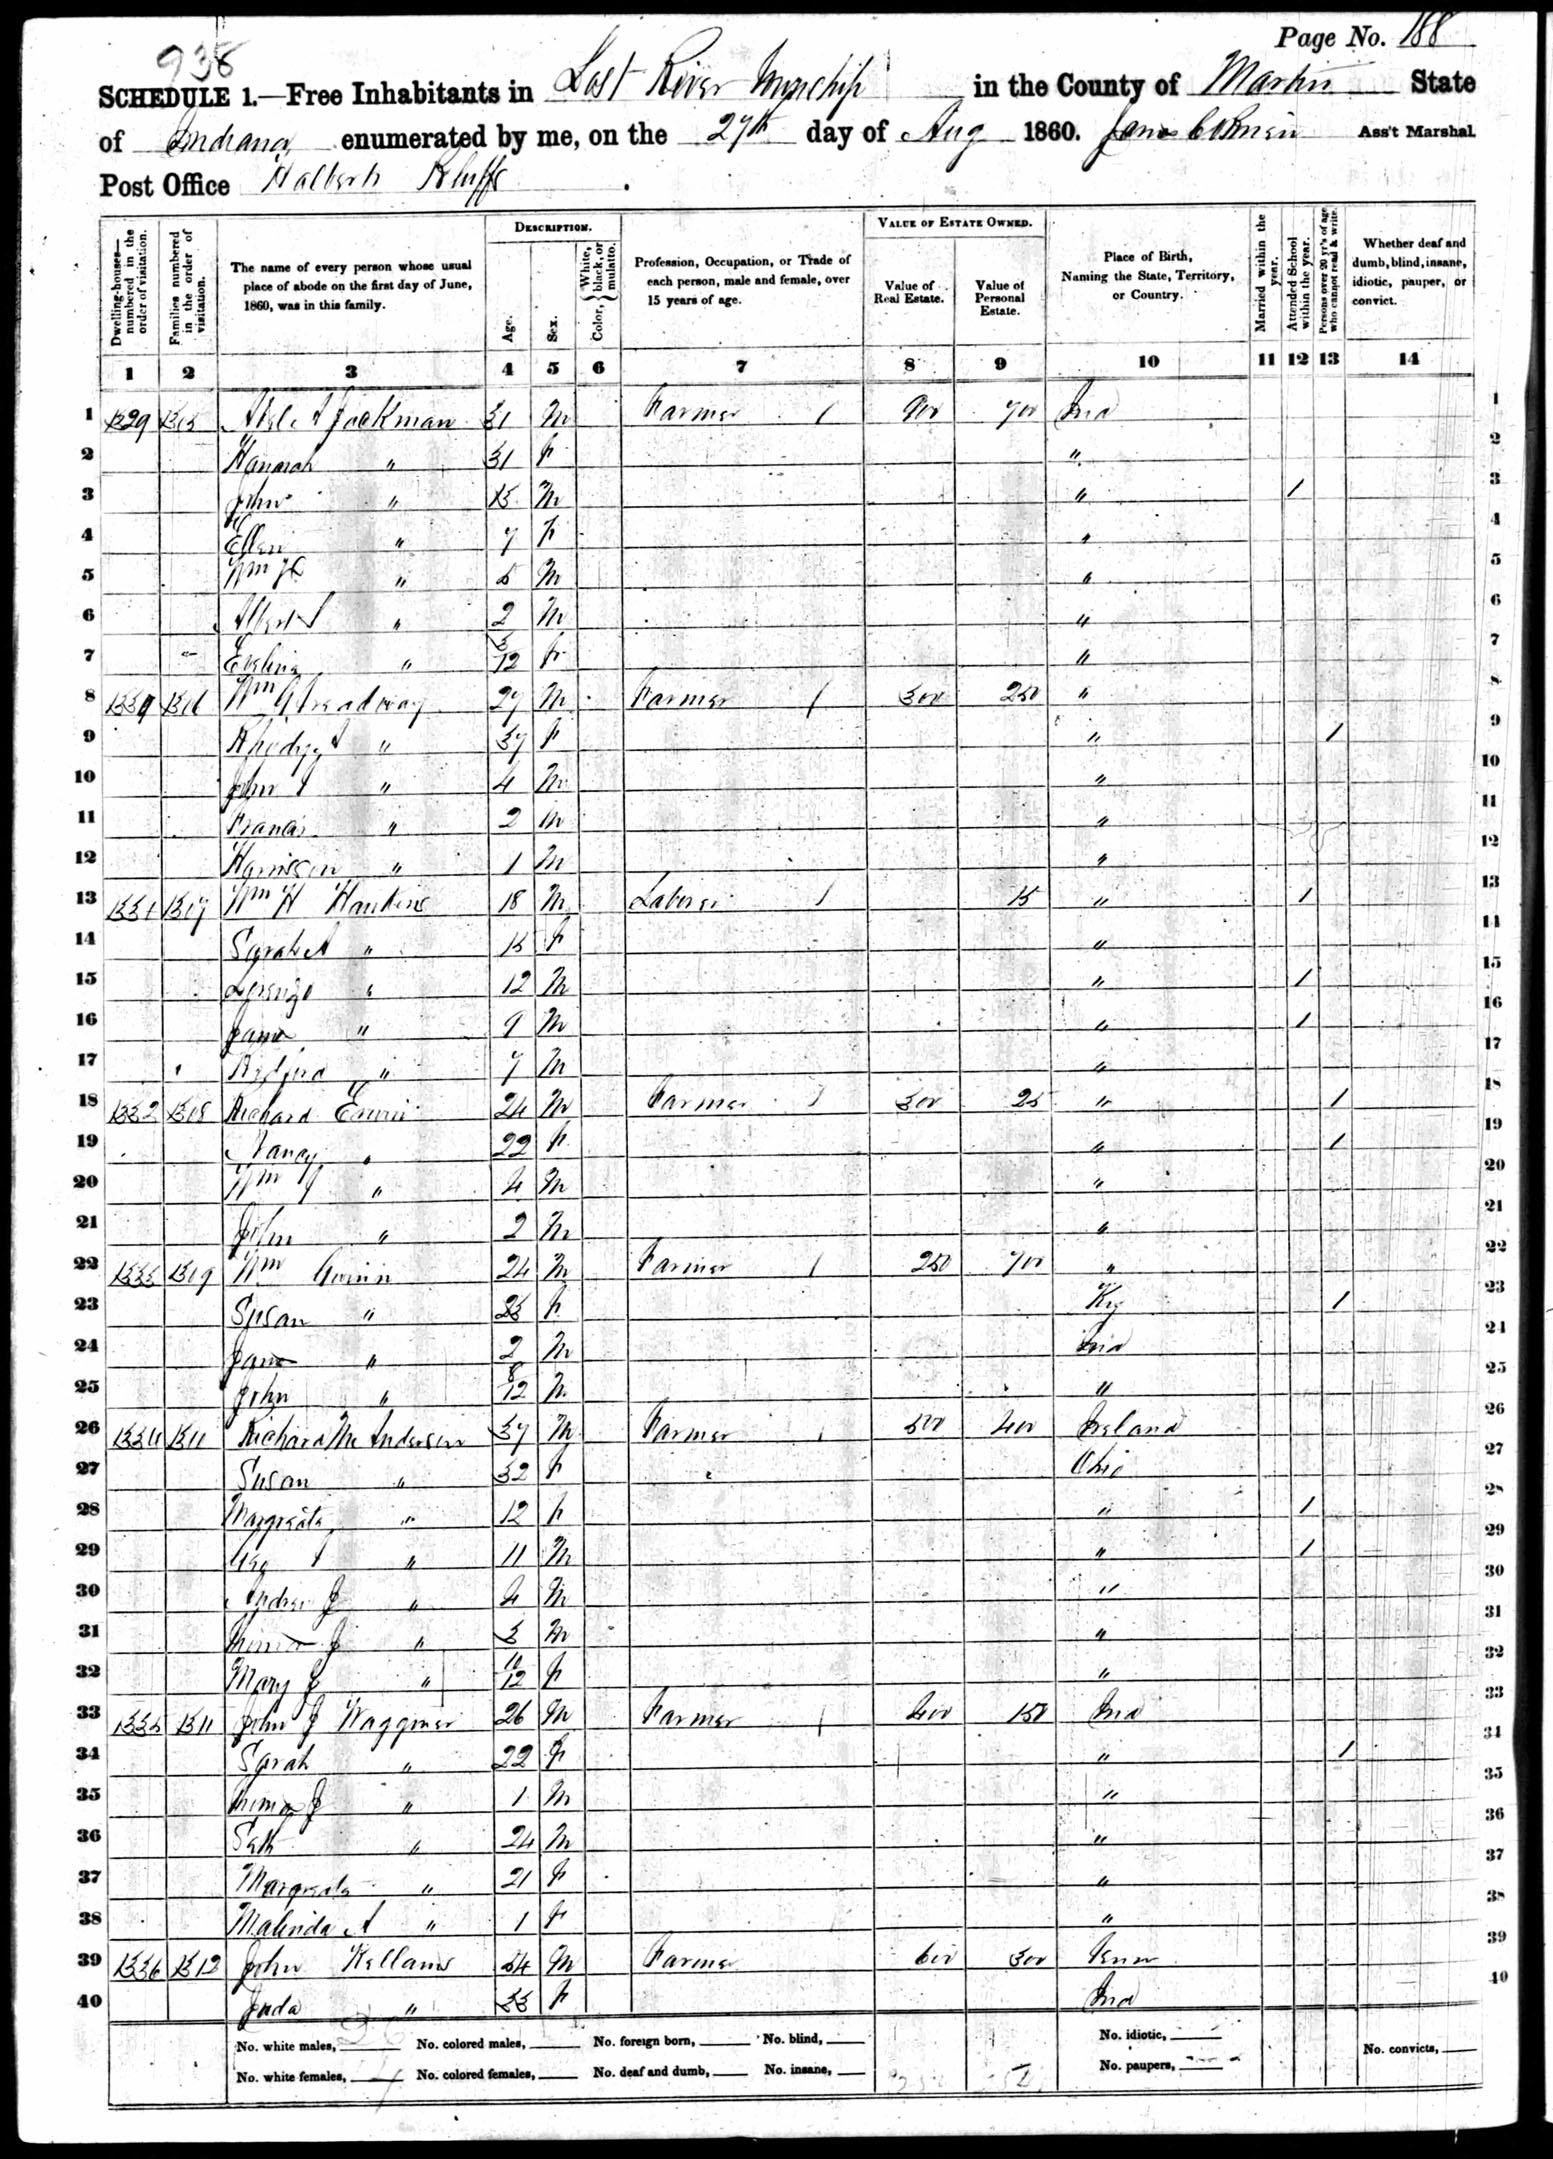 938
Page No. 188
SCHEDULE 1.—Free Inhabitants in Lost River Township in the County of Martin State
of Indiana enumerated by me, on the 27th day of Aug 1860. Ass't Marshal.
Post Office Halberts Bluffs
Dwelling-houses—numbered in the order of visitation.
Families numbered in the order of visitation.
The name of every person whose usual place of abode on the first day of June, 1860, was in this family.
DESCRIPTION.
Age.
Sex.
Color, { White, black, or mulatto.
Profession, Occupation, or Trade of each person, male and female, over 15 years of age.
VALUE OF ESTATE OWNED.
Value of Real Estate.
Value of Personal Estate.
Place of Birth, Naming the State, Territory, or Country.
Married within the year.
Attended School within the year.
Persons over 20 yr's of age who cannot read & write.
Whether deaf and dumb, blind, insane, idiotic, pauper, or convict.
1 2 3 4 5 6 7 8 9 10 11 12 13 14
1 1329 1305 Jackman 31 M Farmer 1 900 700 Ind 1
2 Hannah " 31 F " 2
3 John " 15 M " 1 3
4 Ellen " 7 F " 4
5 Wm H " 5 M " 5
6 Albert " 2 M " 6
7 Evaline " 3/12 F " 7
8 1330 1306 Wm Treadway 27 M Farmer 1 300 250 " 8
9 " 37 F " 1 9
10 John " 4 M " 10
11 Francis " 2 M " 11
12 Harrison " 1 M " 12
13 1331 1307 Wm H Hawkins 18 M Laborer 1 15 " 1 13
14 Sarah A " 15 F " 14
15 Lorenzo " 12 M " 1 15
16 James " 9 M " 1 16
17 " 7 M " 17
18 1332 1308 Richard 24 M Farmer 1 300 25 " 1 18
19 Nancy " 22 F " 1 19
20 Wm " 4 M " 20
21 John " 2 M " 21
22 1333 1309 Wm 24 M Farmer 1 250 700 " 22
23 Susan " F Ky 1 23
24 James " 2 M Ind 24
25 John " 8/12 M " 25
26 Richard Mc Anderson 37 M Farmer 500 400 Ireland 26
27 Susan " 32 F Ohio 27
28 " 12 F " 1 28
29 Geo " 11 M " 1 29
30 Andrew J " 4 M " 30
31 J " 3 M " 31
32 Mary J " F " 32
33 1335 1311 John J Waggoner 26 M Farmer 1 400 150 Ind 33
34 Sarah " 22 F " 1 34
35 J " 1 M " 35
36 Seth " 24 M " 36
37 " 21 F " 37
38 Malinda A " 1 F " 38
39 1336 1312 John Kellams M Farmer 600 300 Tenn 39
40 Juda " F Ind 40
No. white males, No. colored males, No. foreign born, No. blind, No. idiotic,
No. white females, No. colored females, No. deaf and dumb, No. insane, No. paupers, No. convicts,